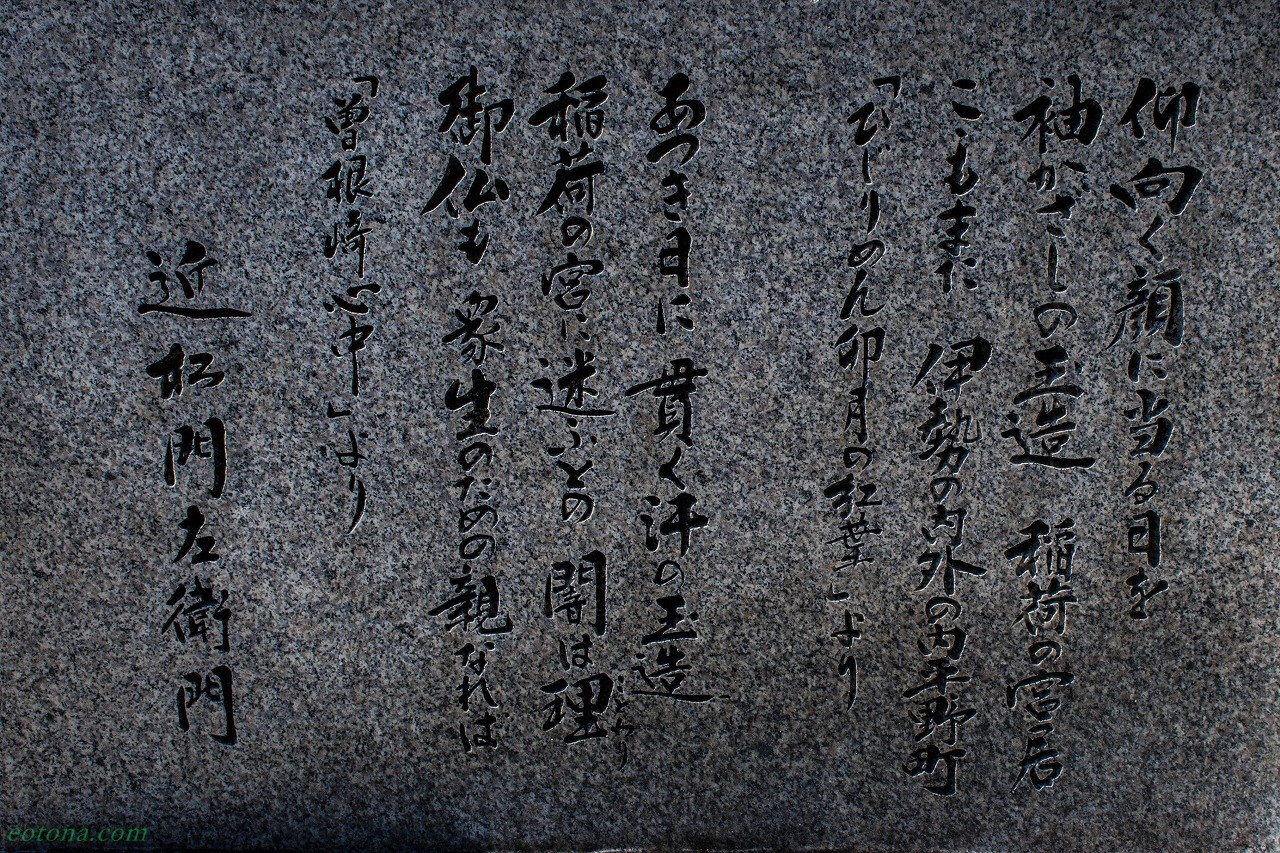 仰向く顔に当る日を
袖がざしの玉造 稲荷の宮居
こゝもまた 伊勢の内外の内平野町
「ひぢりめん卯月の紅葉」より
あつき日に 貫く汗の玉造
稲荷の宮に迷ふとの 闇は理
ことわり
御仏も 衆生のための親なれば
「曽根崎心中」より
近松門左衛門
eotona.com